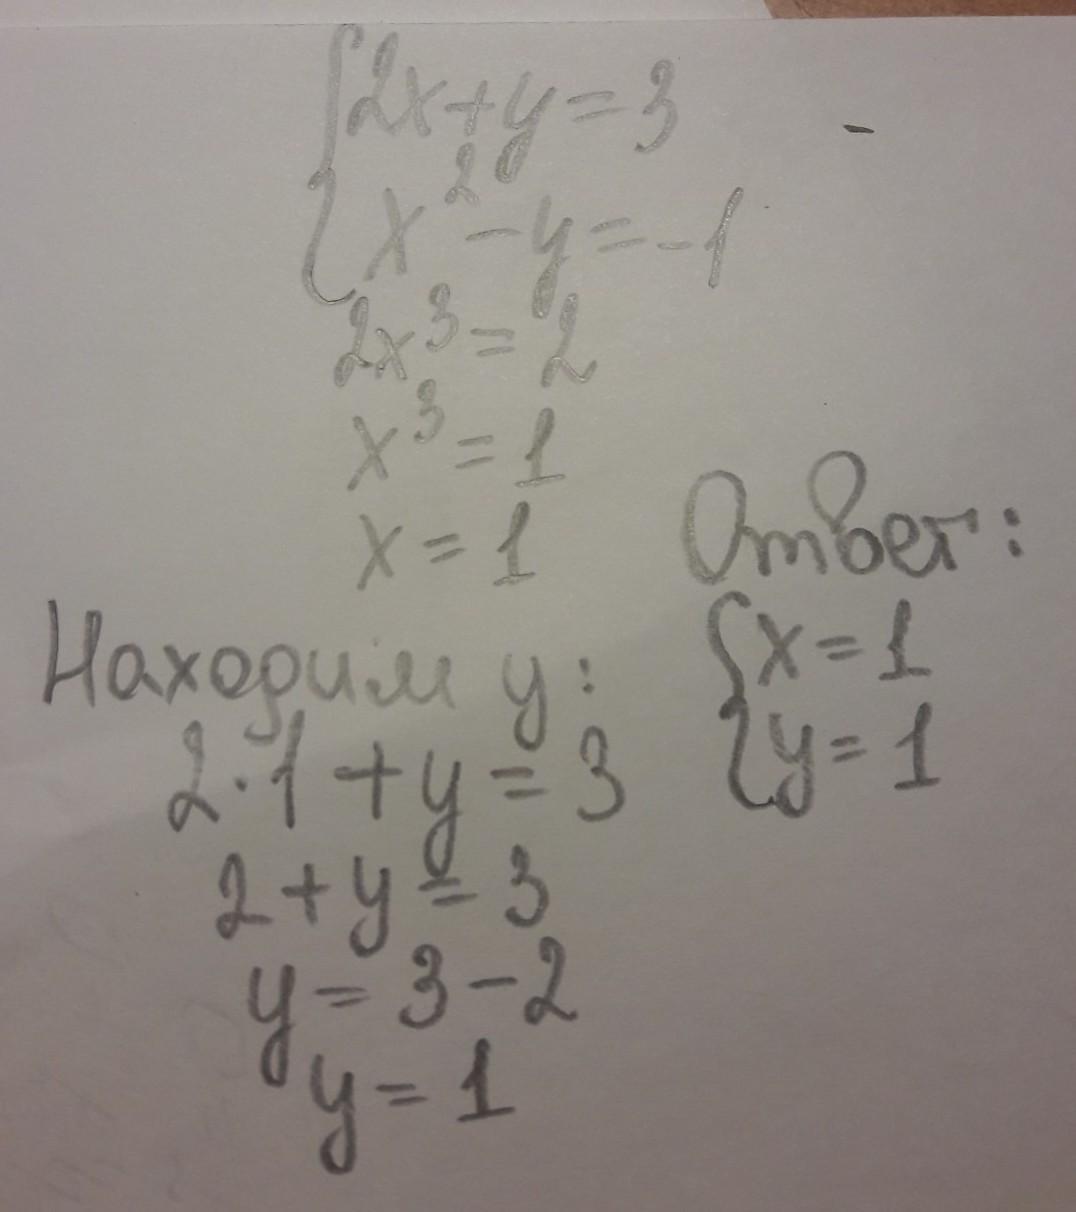 {2x+y=3
x²-y=-1
2x³=2
x³=1
x=1
Находим y:
2·1+y=3
2+y=3
y=3-2
y=1
Ответ:
{x=1
y=1